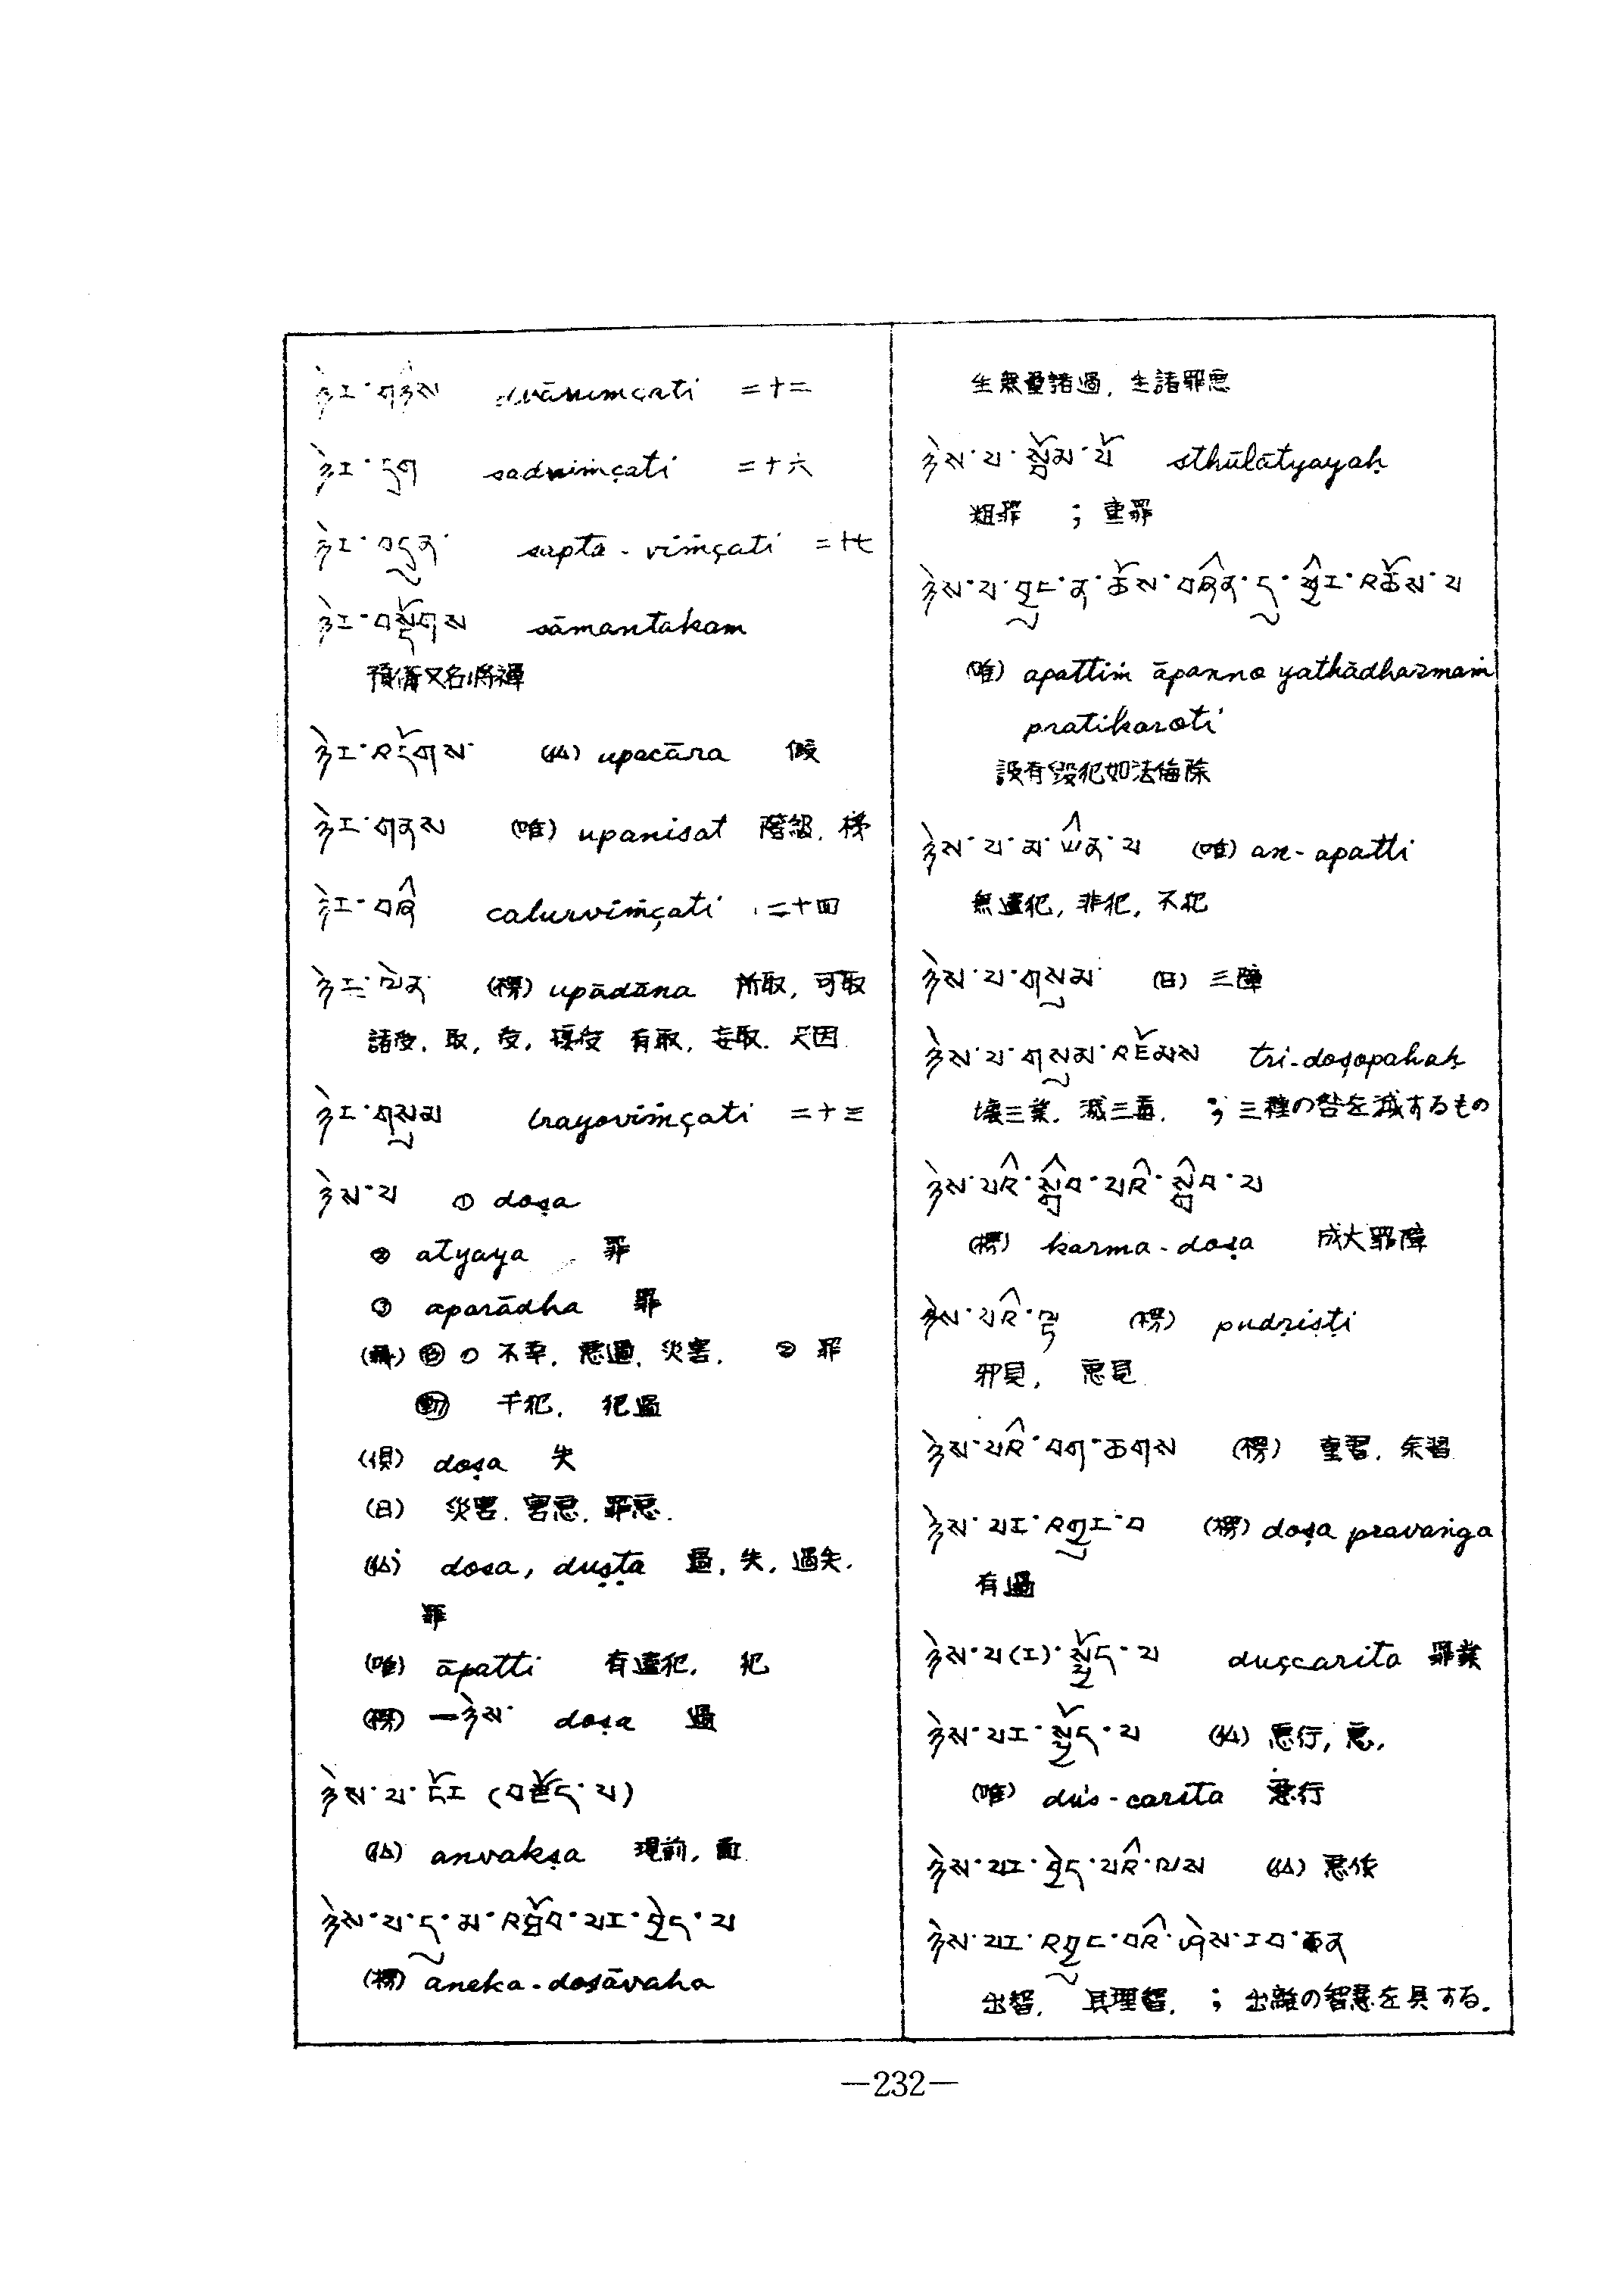 ཉེར་གཉིས dvāviṃçati 二十二
ཉེར་དྲུག sadviṁçati 二十六
ཉེར་བདུན་ sapta-viṁçati 二十七
ཉེར་བསྡོགས sāmantakam
預備又名將禪
ཉེར་འདོགས་ (仏) upacāra 假
ཉེར་གནས (唯) upanisat 階級, 梯
ཉེར་བཞི caturviṁçati 二十四
ཉེར་ལེན་ (楞) upādāna 所取, 可取
諸受, 取, 受, 有取, 妄取.
ཉེར་གསུམ trayoviṁçati 二十三
ཉེས་པ ① doṣa
② atyaya 罪
③ aparādha 罪
不幸, 悪過, 災害, ② 罪
動 干犯, 犯過
(倶) doṣa 失
(日) 災害, 害悪, 罪悪.
(仏) dosa, duṣṭa 過, 失, 過失,
罪
(唯) āpatti 有違犯, 犯
(楞) 一ཉེས་ doṣa 過
ཉེས་པ་ངོར (བརྗོད་པ)
(仏) anvakṣa 現前, 面
ཉེས་པ་དུ་མ་འཐོབ་པར་བྱེད་པ
(楞) aneka-doṣāvaha
生無量諸過, 生諸罪悪
ཉེས་པ་སྦོམ་པོ sthūlātyayaḥ
粗罪 ; 重罪
ཉེས་པ་བྱུང་ན་ཆོས་བཞིན་དུ་ཕྱིར་འཆོས་པ
(唯) apattiṁ āpanno yathādharmaṁ
pratikaroti
設有毀犯如法悔除
ཉེས་པ་མ་ཡིན་པ (唯) an-apatti
無違犯, 非犯, 不犯
ཉེས་པ་གསུམ་ (日) 三障
ཉེས་པ་གསུམ་འཇོམས tri-doṣopahaḥ
壊三業, 滅三毒, ; 三種の咎を滅するもの
ཉེས་པའི་སྒྲིབ་པའི་སྒྲིབ་པ
(楞) karma-doṣa 成大罪障
ཉེས་པའི་ལྟ (楞) pudṛiṣṭi
邪見, 悪見
ཉེས་པའི་བག་ཆགས (楞) 重習,
ཉེས་པར་འགྱུར་བ (楞) doṣa pravaṅga
有過
ཉེས་པ(ར)་སྤྱོད་པ duṣcarita 罪業
ཉེས་པར་སྤྱོད་པ (仏) 悪行, 悪,
(唯) duś-carita 悪行
ཉེས་པར་བྱེད་པའི་ལས (仏) 悪作
ཉེས་པར་འབྱུང་བའི་ཤེས་རབ་ཅན
出智, 其理智, ; 出離の智慧を具する.
—232—